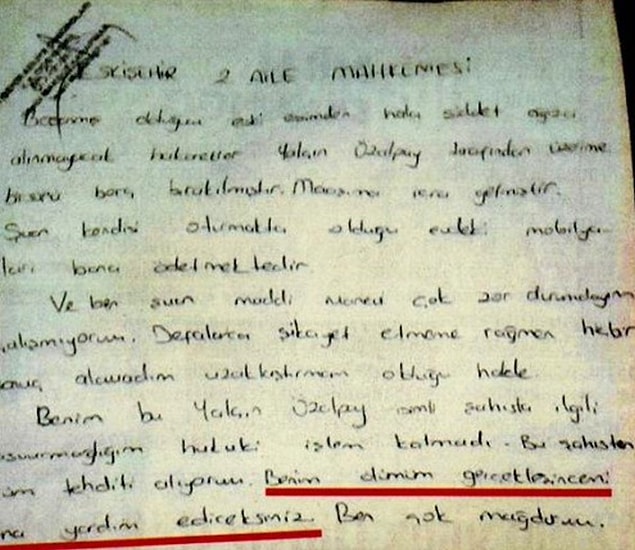 ESKİŞEHİR 2 AİLE MAHKEMESİ
olduğum eski eşimden hala şiddet
alınmayacak hakaretler Yalçın Özalpay tarafından üzerime
bi sürü borç bırakılmıştır. Maaşıma icra gelmiştir.
Şuan kendisi oturmakta olduğu evdeki mobilya
ları bana ödetmektedir.
Ve ben şuan maddi manevi çok zor durumdayım
alışmıyorum. Defalarca şikayet etmeme rağmen hebir
onuç alamadım uzaklaştırmam olduğu halde.
Benim bu Yalçın Özalpay isimli şahısla ilgili
hukuki işlem kalmadı. Bu şahıstan
üm tehditi alıyorum. Benim ölümüm gerçekleşincemi
na yardım ediceksiniz. Ben çok mağdurum.